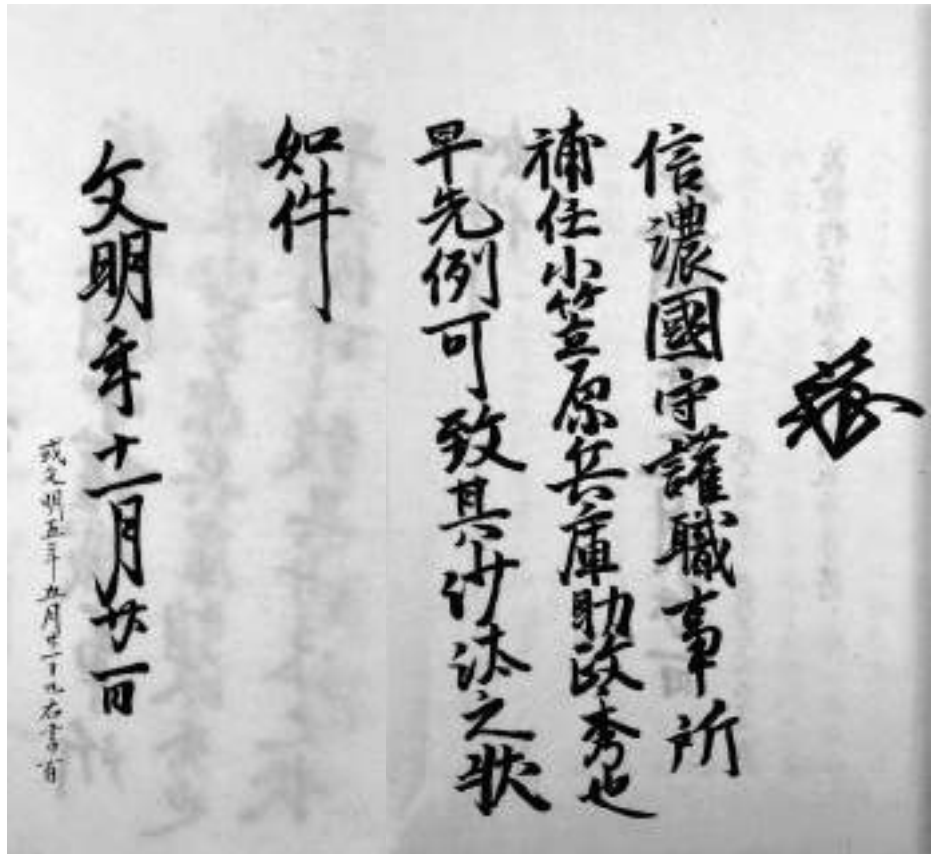 信濃國守護職事所
補任小笠原兵庫助政秀也
早先例可致其沙汰之状
如件
文明年十一月廿一日
或文明五年五月廿一